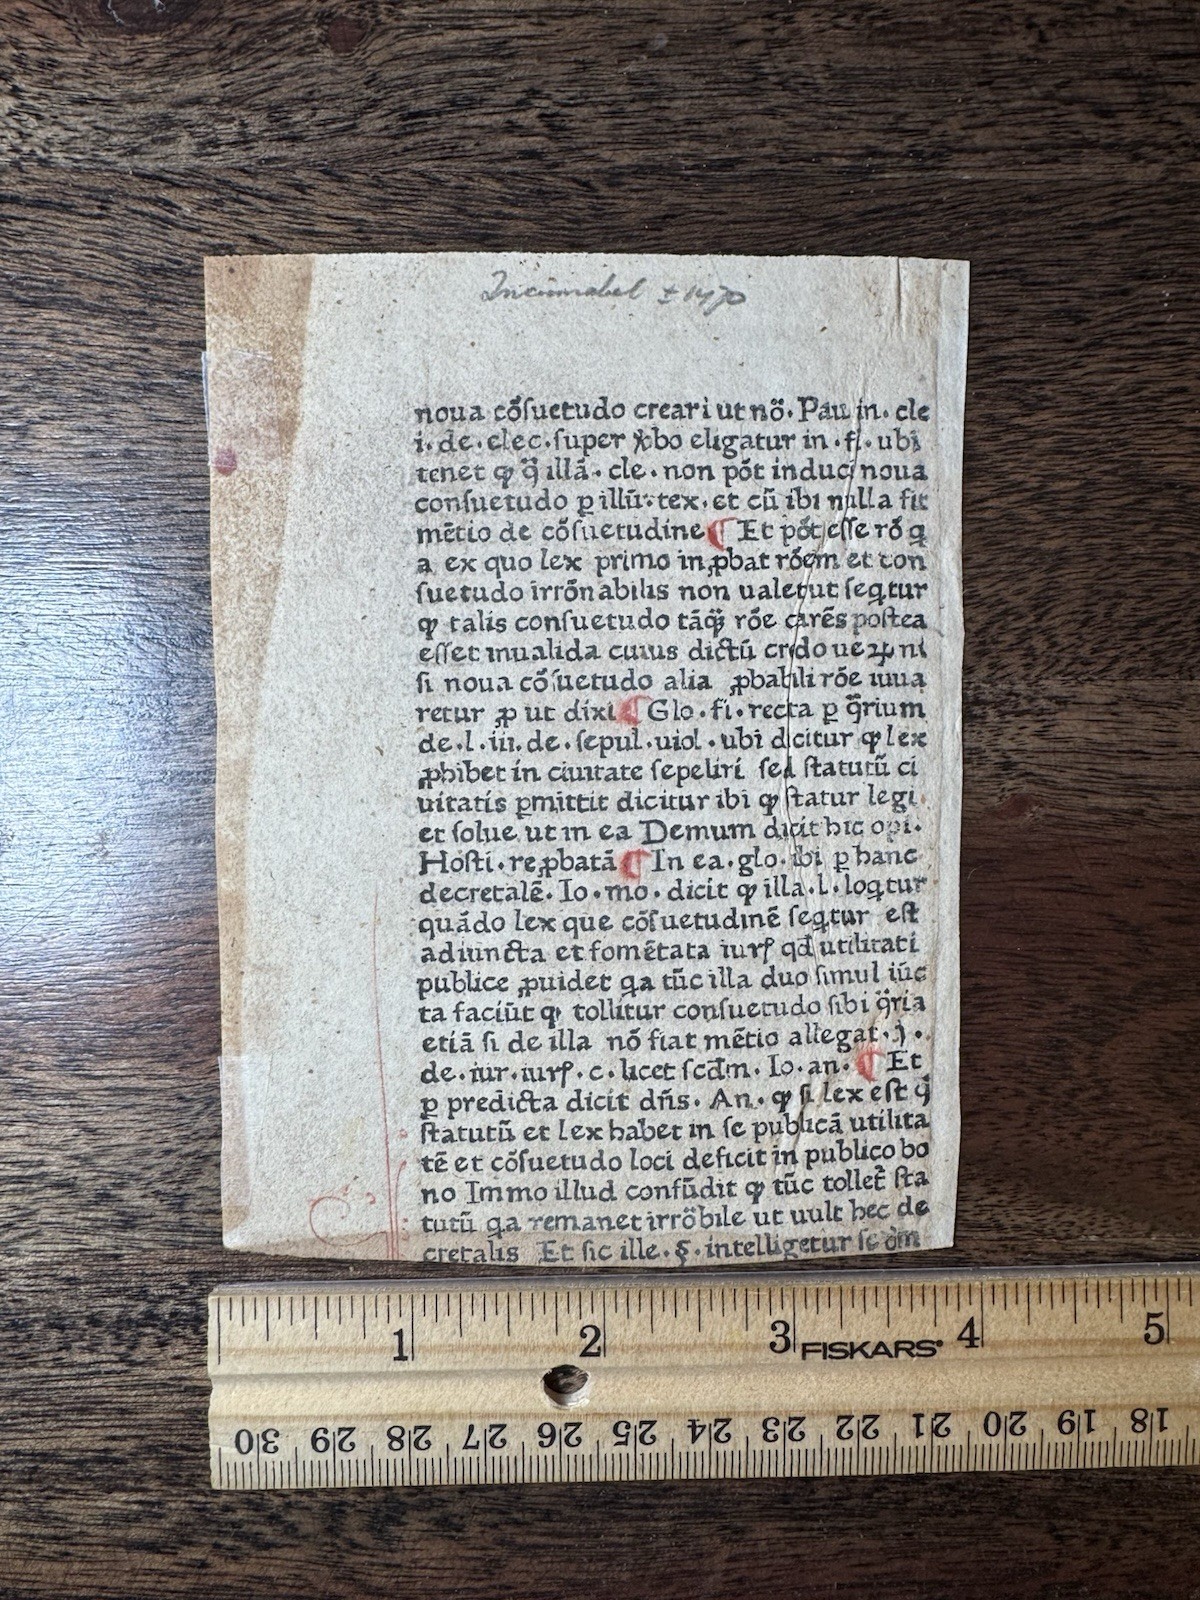 Incunabel ± 1470
noua cõſuetudo creari ut nõ. Pau in. cle
i. de. elec. ſuper ꝟbo eligatur in. fi. ubi
tenet ꝙ ꝗ̈ illã. cle. non põt induci noua
conſuetudo ꝑ illũ. tex. et cũ ibi nulla fit
mẽtio de cõſuetudine ¶ Et põt eſſe rõ ꝗ
a ex quo lex primo in ꝓbat rõem et con
ſuetudo irrõnabilis non ualet ut ſeꝗtur
ꝙ talis conſuetudo tãꝗ̈ rõe carẽs poſtea
eſſet inualida cuius dictũ crdo ueꝝ ni
ſi noua cõſuetudo alia ꝓbabili rõe iuua
retur ꝓ ut dixi ¶ Glo. fi. recta ꝑ ꝗ̈rium
de. l. iii. de. ſepul. uiol. ubi dicitur ꝙ lex
ꝓhibet in ciuitate ſepeliri ſed ſtatutũ ci
uitatis ꝑmittit dicitur ibi ꝙ ſtatur legi.
et ſolue ut in ea Demum dicit hic opi.
Hoſti. reꝓbatã ¶ In ea. glo. ibi ꝑ hanc
decretalẽ. Io. mo. dicit ꝙ illa. l. loꝗtur
quãdo lex que cõſuetudinẽ ſeꝗtur eſt
adiuncta et fomẽtata iurꝭ qđ utilitati
publice ꝓuidet ꝗa tũc illa duo ſimul iũc
ta faciũt ꝙ tollitur conſuetudo ſibi ꝗ̈ria
etiã ſi de illa nõ fiat mẽtio allegat. j.
de. iur. iurꝭ. c. licet ſcđm. Io. an. ¶ Et
ꝑ predicta dicit dñs. An. ꝙ ſi lex eſt ꝗ̈
ſtatutũ et lex habet in ſe publicã utilita
tẽ et cõſuetudo loci deficit in publico bo
no Immo illud confũdit ꝙ tũc tollet̃ ſta
tutũ ꝗa remanet irrõbile ut uult hec de
cretalis Et ſic ille. §. intelligetur ſcđm
1 2 3 4 5
FISKARS
30 29 28 27 26 25 24 23 22 21 20 19 18